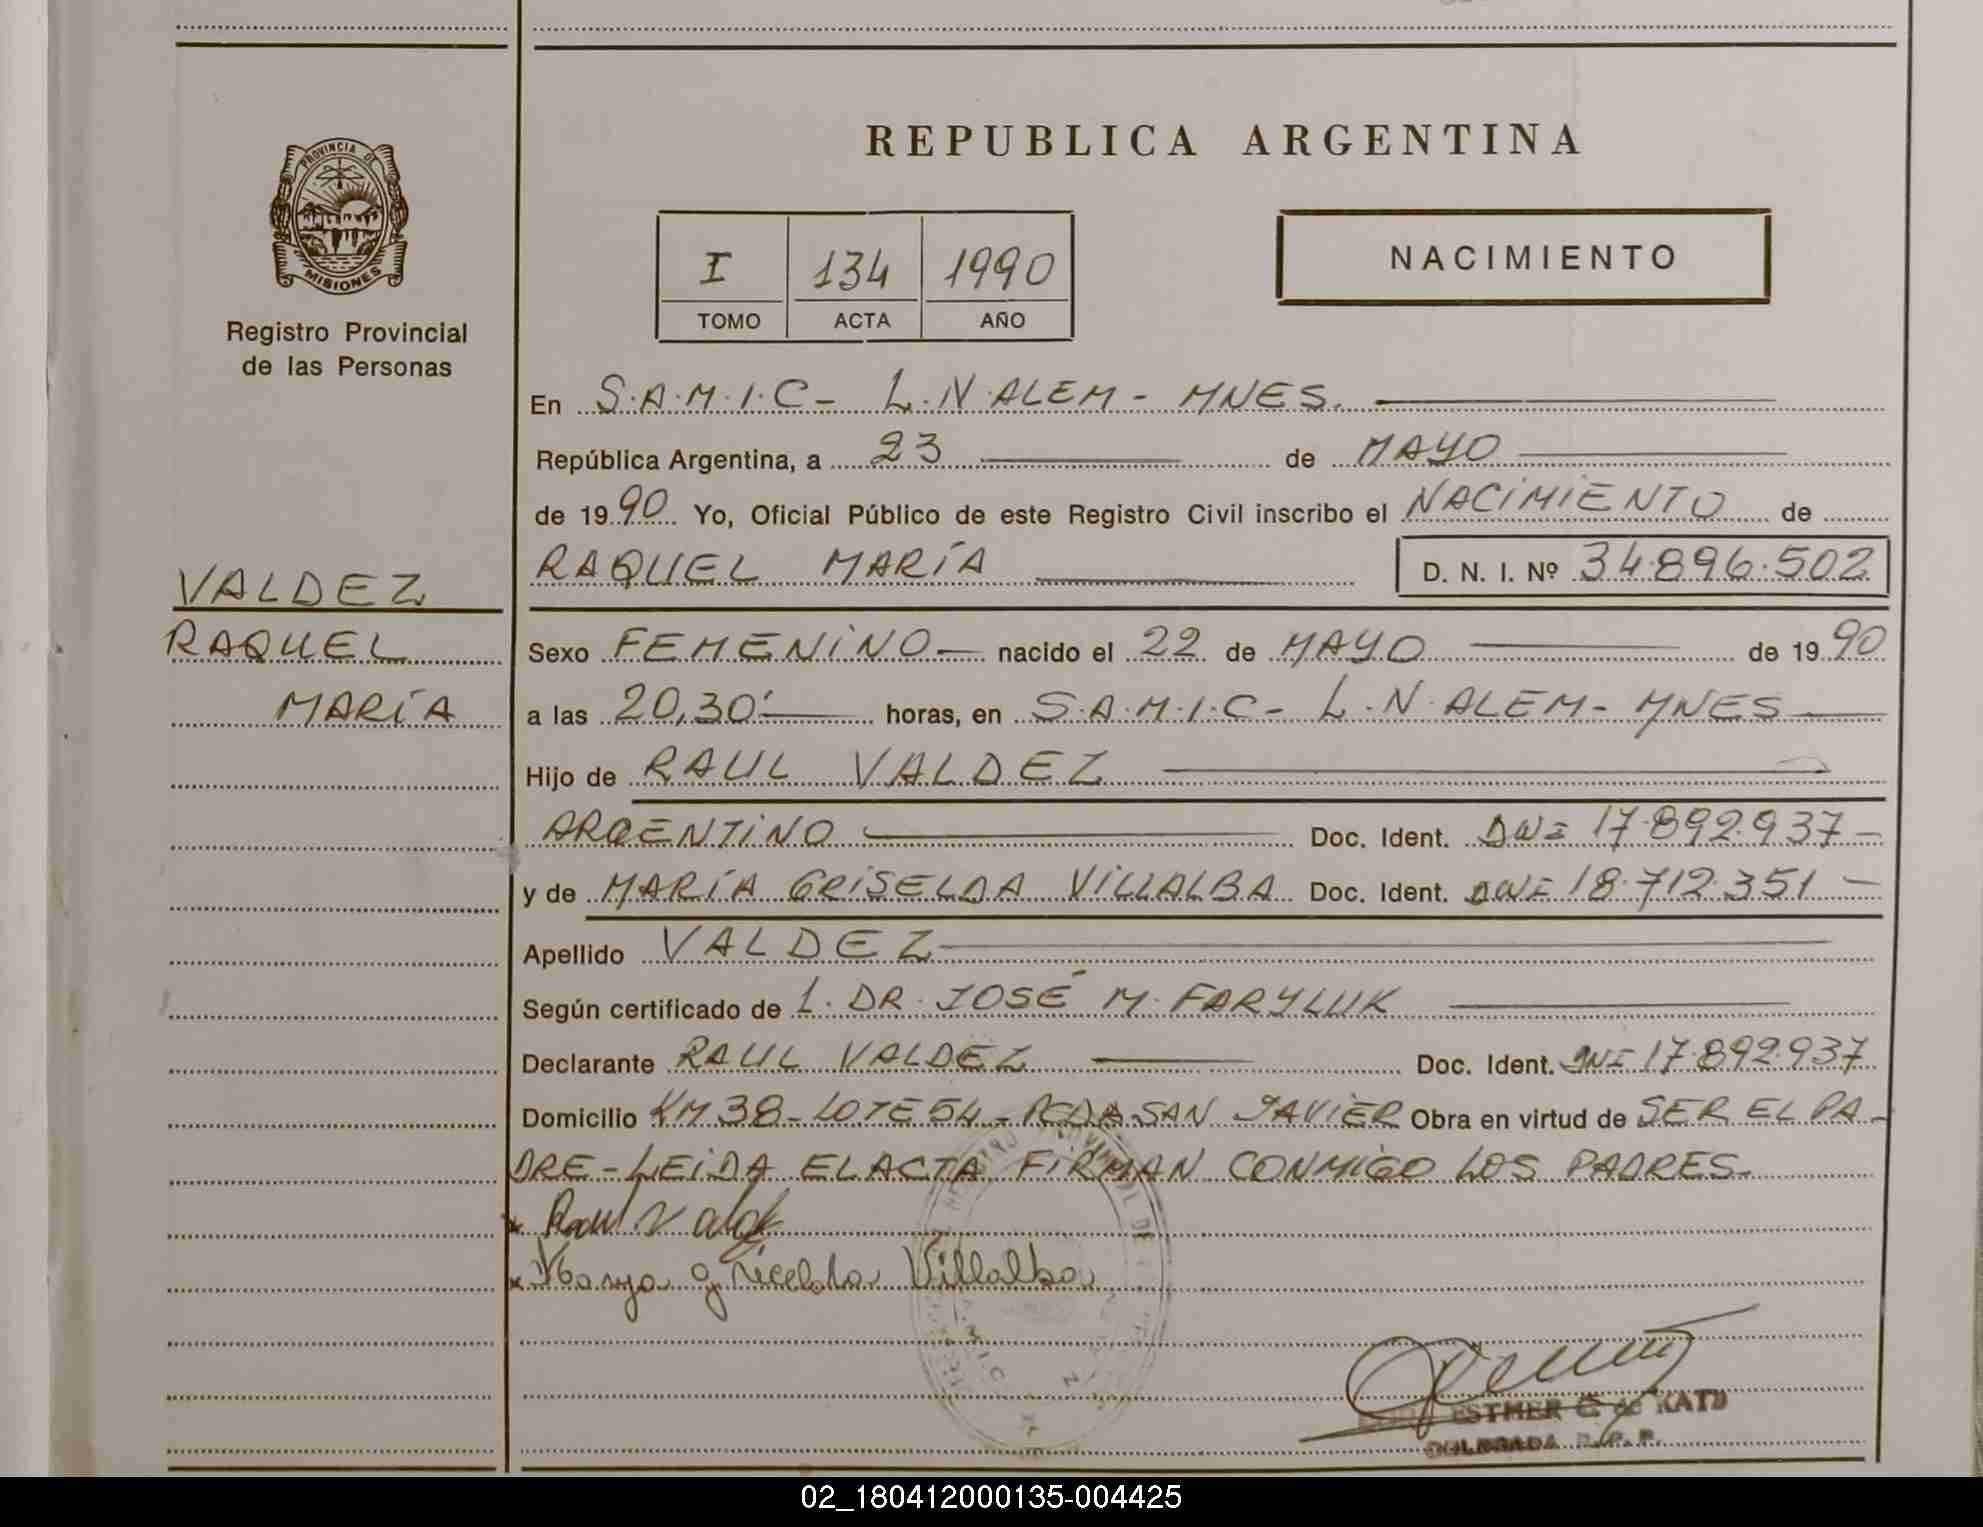 REPUBLICA ARGENTINA
PROVINCIA DE
MISIONES
Registro Provincial
de las Personas
I 134 1990
TOMO ACTA AÑO
NACIMIENTO
En S.A.M.I.C- L.N.ALEM- MNES.
República Argentina, a 23 de MAYO
de 1990 Yo, Oficial Público de este Registro Civil inscribo el NACIMIENTO de
RAQUEL MARÍA D. N. I. Nº 34.896.502
VALDEZ
RAQUEL
MARÍA
Sexo FEMENINO nacido el 22 de MAYO de 1990
a las 20,30' horas, en S.A.M.I.C- L.N.ALEM- MNES
Hijo de RAUL VALDEZ
ARGENTINO Doc. Ident. DNI 17.892.937-
y de MARÍA GRISELDA VILLALBA Doc. Ident. DNI 18.712.351-
Apellido VALDEZ
Según certificado de L. DR. JOSÉ M. FARYLUK
Declarante RAUL VALDEZ Doc. Ident. DNI 17.892.937
Domicilio KM 38- LOTE 54- PCDA SAN JAVIER Obra en virtud de SER EL PA-
DRE- LEIDA EL ACTA FIRMAN CONMIGO LOS PADRES.
Raul Valdez
Villalba
ESTHER
DELEGADA R.P.P.
02_180412000135-004425